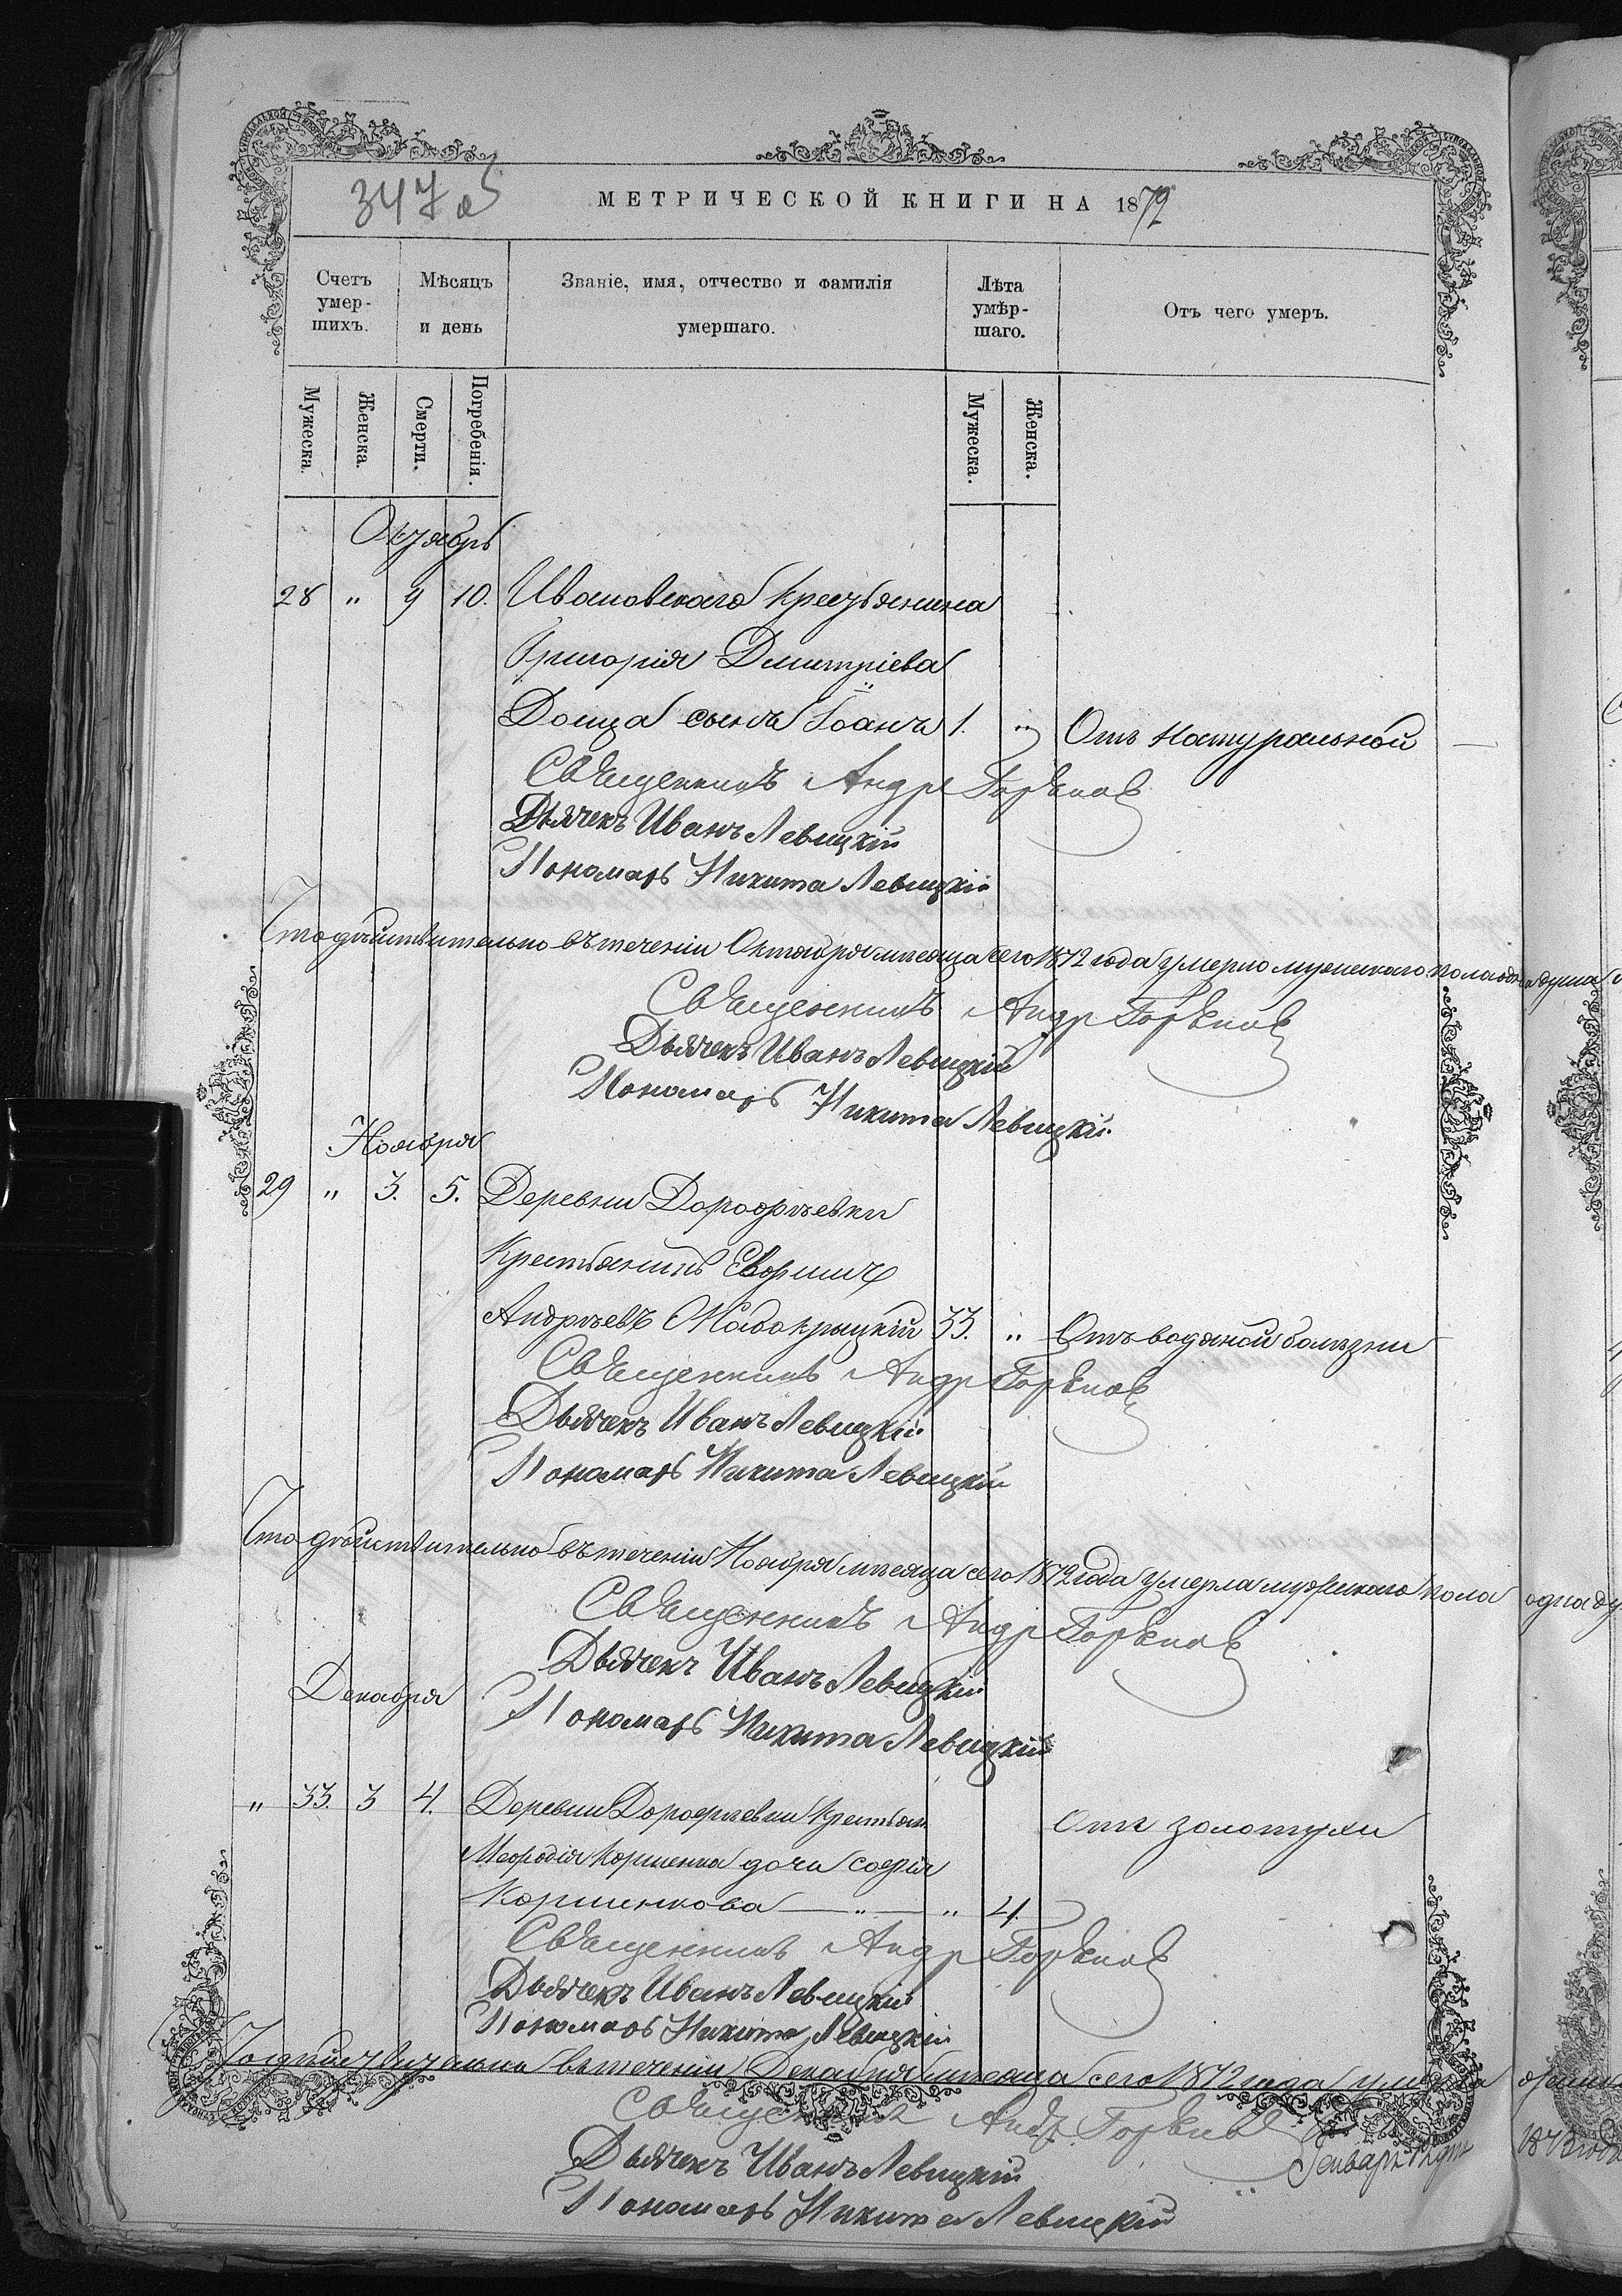 347 об
МЕТРИЧЕСКОЙ КНИГИ НА 1872
Счетъ умер-шихъ.
Мѣсяцъ и день
Званіе, имя, отчество и фамилія умершаго.
Лѣта умѣр-шаго.
Отъ чего умеръ.
Мужеска.
Женска.
Смерти.
Погребенія.
Мужеска.
Женска.
Октябрь
28 " 9 10. Ивановскаго крестьянина
Григорія Димитріева
сынъ Іоанъ 1. " Отъ натуральной
Священникъ Андр
Дьячекъ Иванъ Левицкій
Пономарь Никита Левицкій
Что дѣйствительно въ теченіи Октября мѣсяца сего 1872 года умерло мужескаго пола одна душа
Священникъ Андр
Дьячекъ Иванъ Левицкій
Пономарь Никита Левицкій.
Ноября
29 " 3. 5. Деревни Дорофѣевки
Крестьянинъ Евфимій
Андрѣевъ 33. " Отъ водяной болѣзни
Священникъ Андр
Дьячекъ Иванъ Левицкій
Пономарь Никита Левицкій
Что дѣйствительно въ теченіи Ноября мѣсяца сего 1872 года умерла мужескаго пола одна ду
Священникъ Андр
Дьячекъ Иванъ Левицкій
Декабря
Пономарь Никита Левицкій
" 33. 3 4. Деревни Дорофѣевки Крестьян. Отъ золотухи
Мефодія Коршенка дочь Софія
Коршенкова — " — " 4.
Священникъ Андр
Дьячекъ Иванъ Левицкій
Пономарь Никита Левицкій
Что дѣйствительно въ теченіи Декабря мѣсяца сего 1872 года
Священникъ Андр
Генваря 1873 года
Дьячекъ Иванъ Левицкій
Пономарь Никита Левицкій